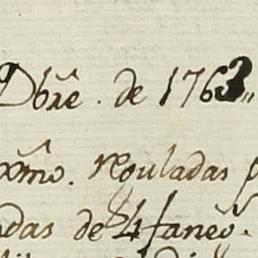 Dbrê. de 1763,,
xmô. reguladas p
das de 24 faneg̃.